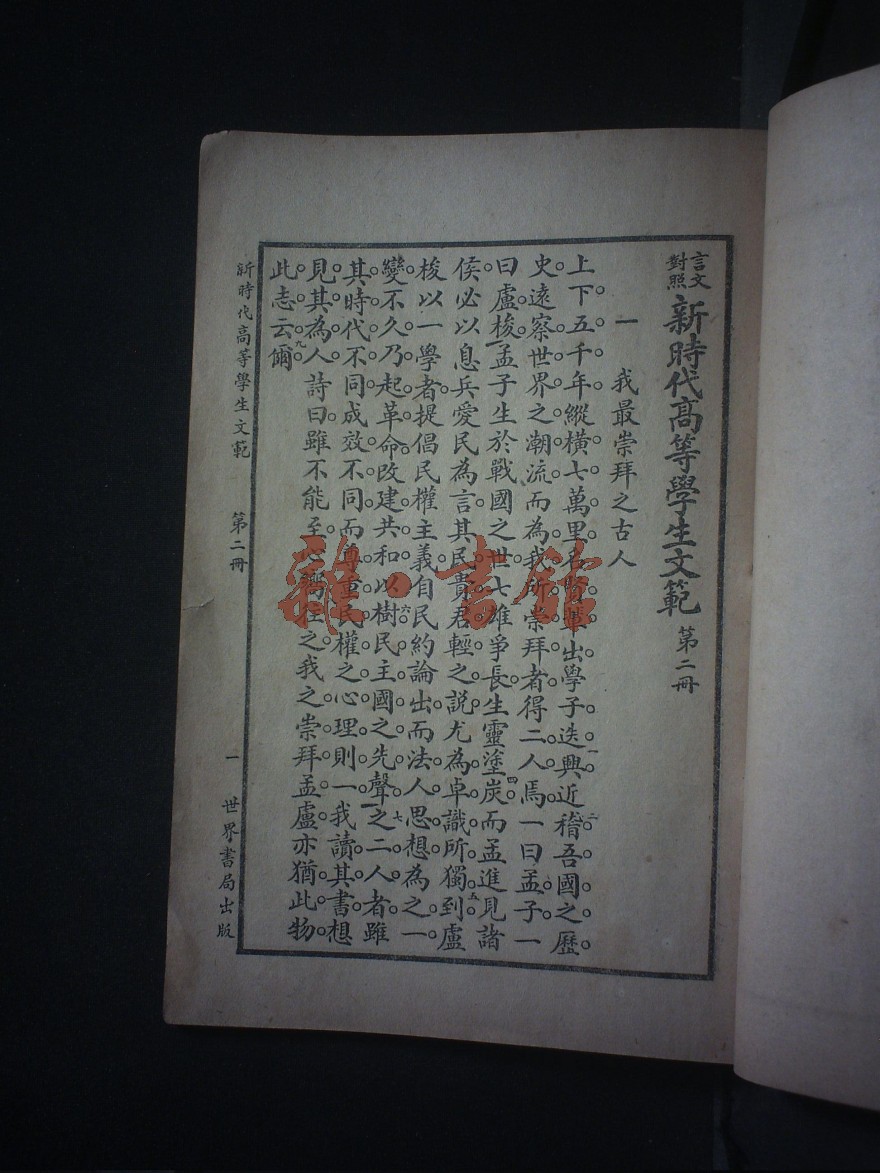 言文對照 新時代高等學生文範 第二冊
一 我最崇拜之古人
上下五千年縱橫七萬里名賢輩出學子迭興近稽吾國之歷
史遠察世界之潮流而為我所崇拜者得二人焉一曰孟子一
曰盧梭孟子生於戰國之世七雄爭長生靈塗炭而孟進見諸
侯必以息兵愛民為言其民貴君輕之說尤為卓識所獨到盧
梭以一學者提倡民權主義自民約論出而法人思想為之一
變不久乃起革命改建共和以樹民主國之先聲之二人者雖
其時代不同成效不同而尊重民權之心理則一我讀其書想
見其為人詩曰雖不能至心嚮往之我之崇拜孟盧亦猶此物
此志云爾
新時代高等學生文範 第二冊 一 世界書局出版
雜·書館